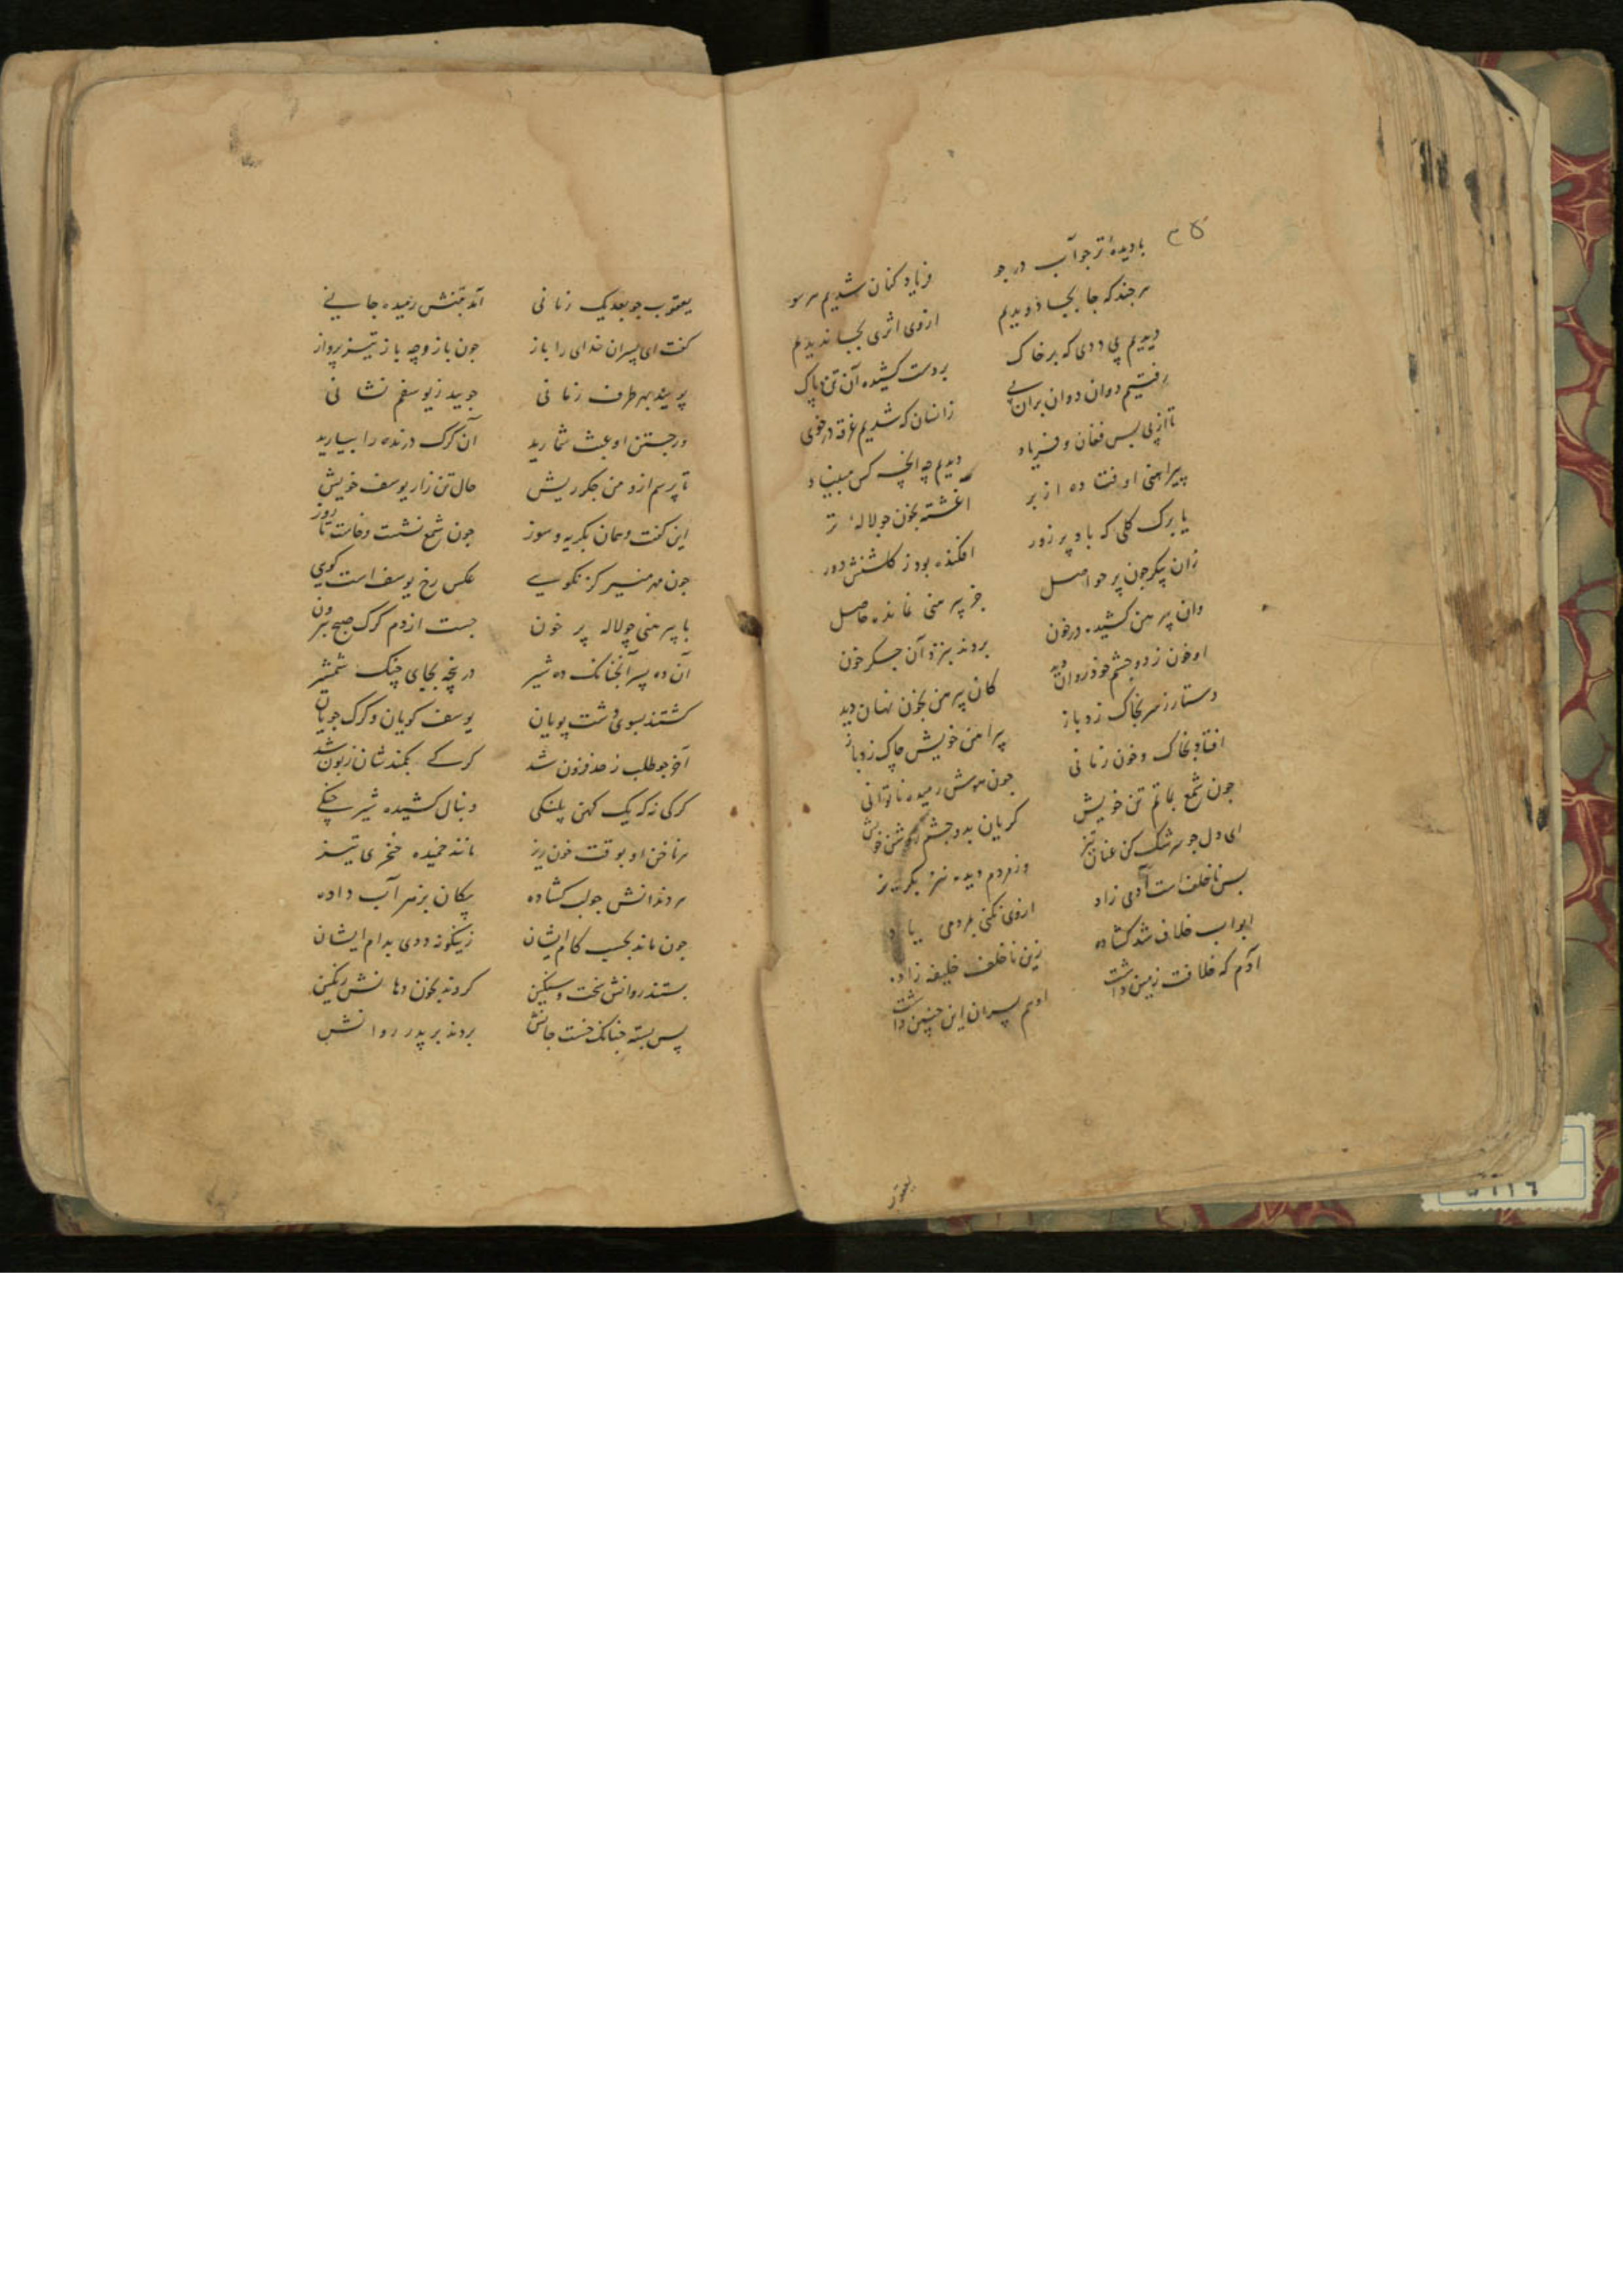 ۳۵
بادیدهٔ تر جو آب در جو فریاد کنان شدیم هر سو
هر چند که جا بجا دویدیم از وی اثری بجا ندیدیم
دیدیم پی ددی که بر خاک بردست کشیده آن تن پاک
رفتیم دوان دوان بران پی زانسان که شدیم غرقه در خوی
تا از پی بس فغان و فریاد دیدیم چه آنچه کس مبیناد
پیراهنی اوفتاده از بر اغشته بخون جو لالهٔ تر
یا برک کلی که باد پر زور افکنده بود ز کلشنش دور
زان پیکر جون پر حواصل جز پیرهنی نمانده حاصل
وان پیرهن کشیده در خون بردند بنزد آن جکر خون
او خون ز دو چشم خود روان دید کان پیرهن بخون نهان دید
دستار ز سر بخاک زد باز پیراهن خویش چاک زد باز
افتاد بخاک و خون زمانی جون هوش رمیده ناتوانی
جون شمع بماتم تن خویش کریان بدو جشم روشن خویش
ای دل جو سرشک کن عنان تیز وز مردم دیده نیز بکریز
بس ناخلف است آدمی زاد از وی نکنی بمردمی یاد
ابواب خلاف شد کشاده زین ناخلف خلیفه زاده
آدم که خلافت زمین داشت او هم پسران این چنین داشت
یعقوب
یعقوب جو بعد یک زمانی آمد بتنش رمیده جانی
کفت ای پسران خدای را باز جون باز وجه باز تیز پرواز
پویید بهر طرف زمانی جویید ز یوسفم نشانی
ور جستن او عبث شمارید آن کرک درنده را بیارید
تا پرسم ازو من جکر ریش حال تن زار یوسف خویش
این کفت و همان بکریه و سوز جون شمع نشست و خاست تا روز
جون مهر منیر کز نکویی عکس رخ یوسف است کویی
با پیرهنی چو لاله پر خون جست از دم کرک صبح بیرون
آن ده پسر آنچنانک ده شیر در پنجه بجای چنک شمشیر
کشتند بسوی دشت پویان یوسف کویان و کرک جویان
آخر جو طلب ز حد فزون شد کرکی بکمندشان زبون شد
کرکی نه که یک کهن پلنکی دنبال کشیده شیر جنکی
هر ناخن او بوقت خون ریز مانند خمیده خنجری تیز
هر دندانش جو لب کشاده پیکان بزهر آب داده
جون ماند بحسب کام ایشان زینکونه ددی بدام ایشان
بستند روانش سخت و سنکین کردند بخون دهانش رنکین
پس بسته چنانک خست جانش بردند بر پدر روانش